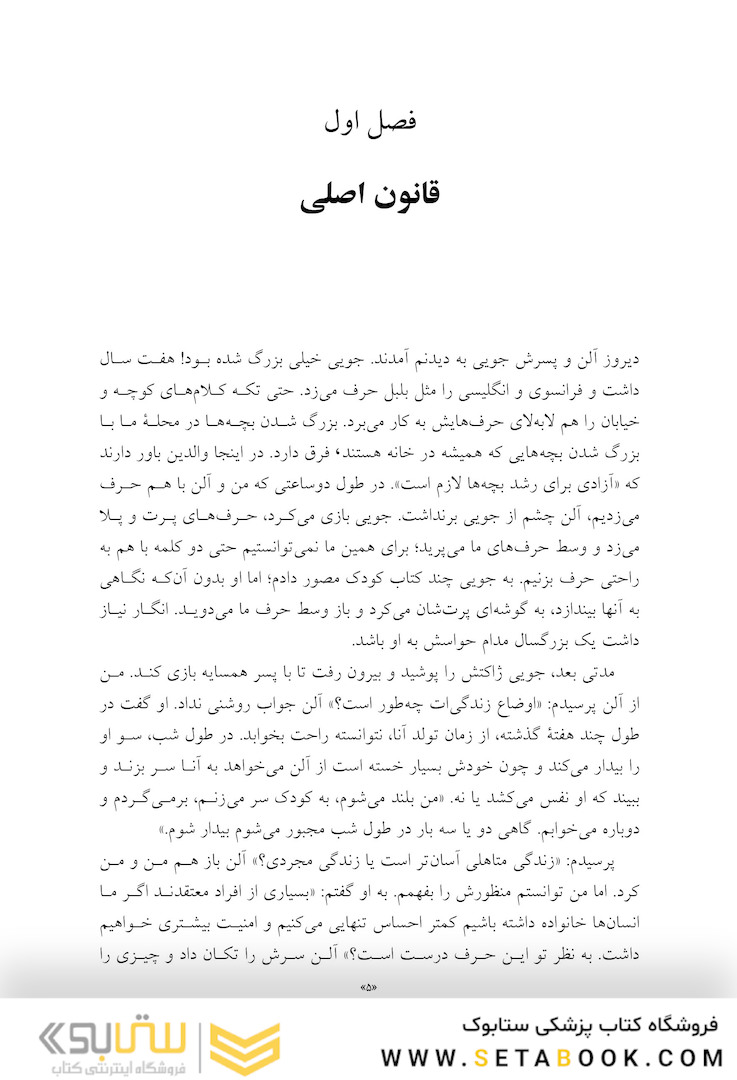 فصل اول
قانون اصلی
دیروز آلن و پسرش جویی به دیدنم آمدند. جویی خیلی بزرگ شده بود! هفت سال
داشت و فرانسوی و انگلیسی را مثل بلبل حرف می‌زد. حتی تکه کلام‌های کوچه و
خیابان را هم لابه‌لای حرف‌هایش به کار می‌برد. بزرگ شدن بچه‌ها در محلۀ ما با
بزرگ شدن بچه‌هایی که همیشه در خانه هستند، فرق دارد. در اینجا والدین باور دارند
که «آزادی برای رشد بچه‌ها لازم است». در طول دوساعتی که من و آلن با هم حرف
می‌زدیم، آلن چشم از جویی برنداشت. جویی بازی می‌کرد، حرف‌های پرت و پلا
می‌زد و وسط حرف‌های ما می‌پرید؛ برای همین ما نمی‌توانستیم حتی دو کلمه با هم به
راحتی حرف بزنیم. به جویی چند کتاب کودک مصور دادم؛ اما او بدون آن‌که نگاهی
به آنها بیندازد، به گوشه‌ای پرت‌شان می‌کرد و باز وسط حرف ما می‌دوید. انگار نیاز
داشت یک بزرگسال مدام حواسش به او باشد.
مدتی بعد، جویی ژاکتش را پوشید و بیرون رفت تا با پسر همسایه بازی کند. من
از آلن پرسیدم: «اوضاع زندگی‌ات چه‌طور است؟» آلن جواب روشنی نداد. او گفت در
طول چند هفتۀ گذشته، از زمان تولد آنا، نتوانسته راحت بخوابد. در طول شب، سو او
را بیدار می‌کند و چون خودش بسیار خسته است از آلن می‌خواهد به آنا سر بزند و
ببیند که او نفس می‌کشد یا نه. «من بلند می‌شوم، به کودک سر می‌زنم، برمی‌گردم و
دوباره می‌خوابم. گاهی دو یا سه بار در طول شب مجبور می‌شوم بیدار شوم.»
پرسیدم: «زندگی متاهلی آسان‌تر است یا زندگی مجردی؟» آلن باز هم من و من
کرد. اما من توانستم منظورش را بفهمم. به او گفتم: «بسیاری از افراد معتقدند اگر ما
انسان‌ها خانواده داشته باشیم کمتر احساس تنهایی می‌کنیم و امنیت بیشتری خواهیم
داشت. به نظر تو این حرف درست است؟» آلن سرش را تکان داد و چیزی را
«۵»
فروشگاه کتاب پزشکی ستابوک
WWW.SETABOOK.COM
ستابوک
فروشگاه اینترنتی کتاب